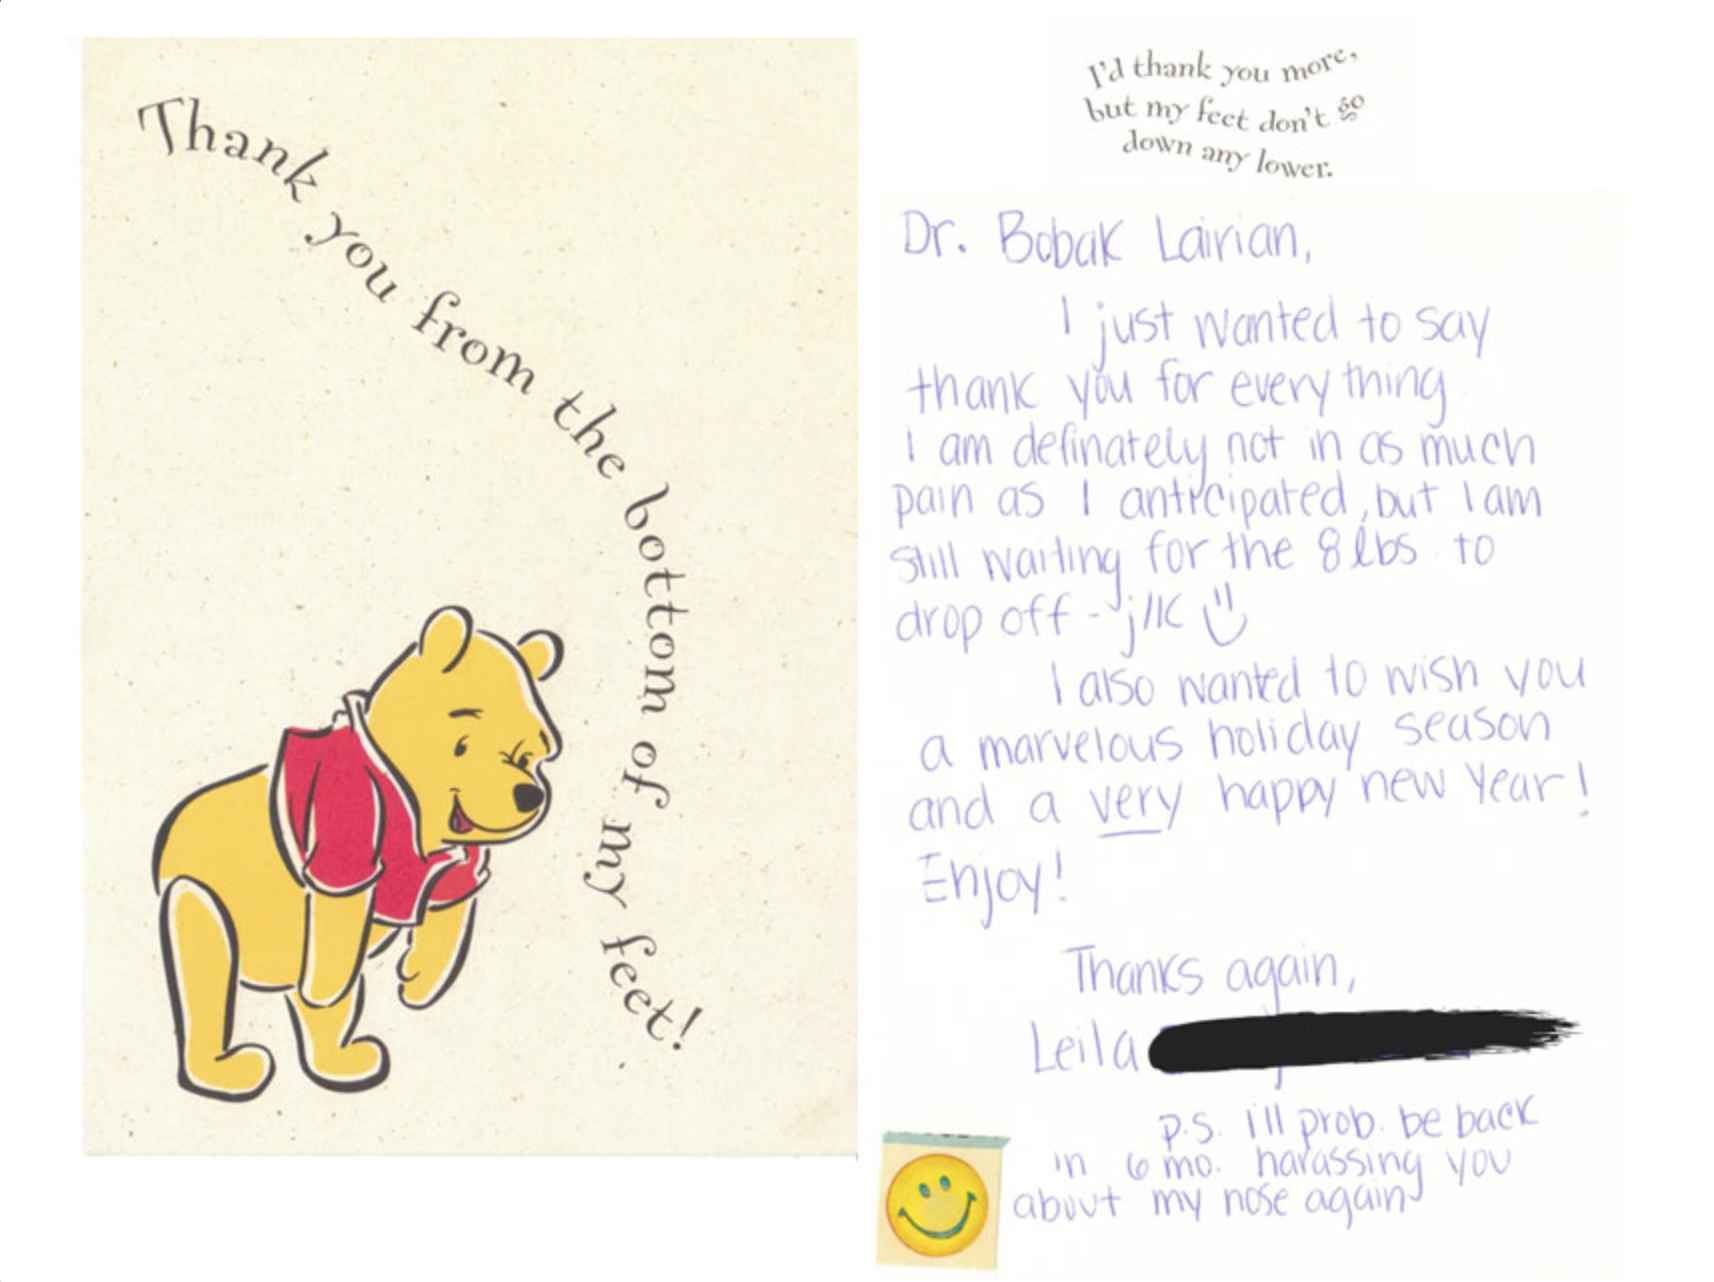 Thank you from the bottom of my feet!
I'd thank you more,
but my feet don't go
down any lower.
Dr. Bobak Lairian,
I just wanted to say
thank you for everything
I am definately not in as much
pain as I anticipated, but I am
still waiting for the 8 lbs. to
drop off - j/k
I also wanted to wish you
a marvelous holiday season
and a very happy new year!
Enjoy!
Thanks again,
Leila
p.s. I'll prob. be back
in 6 mo. harassing you
about my nose again